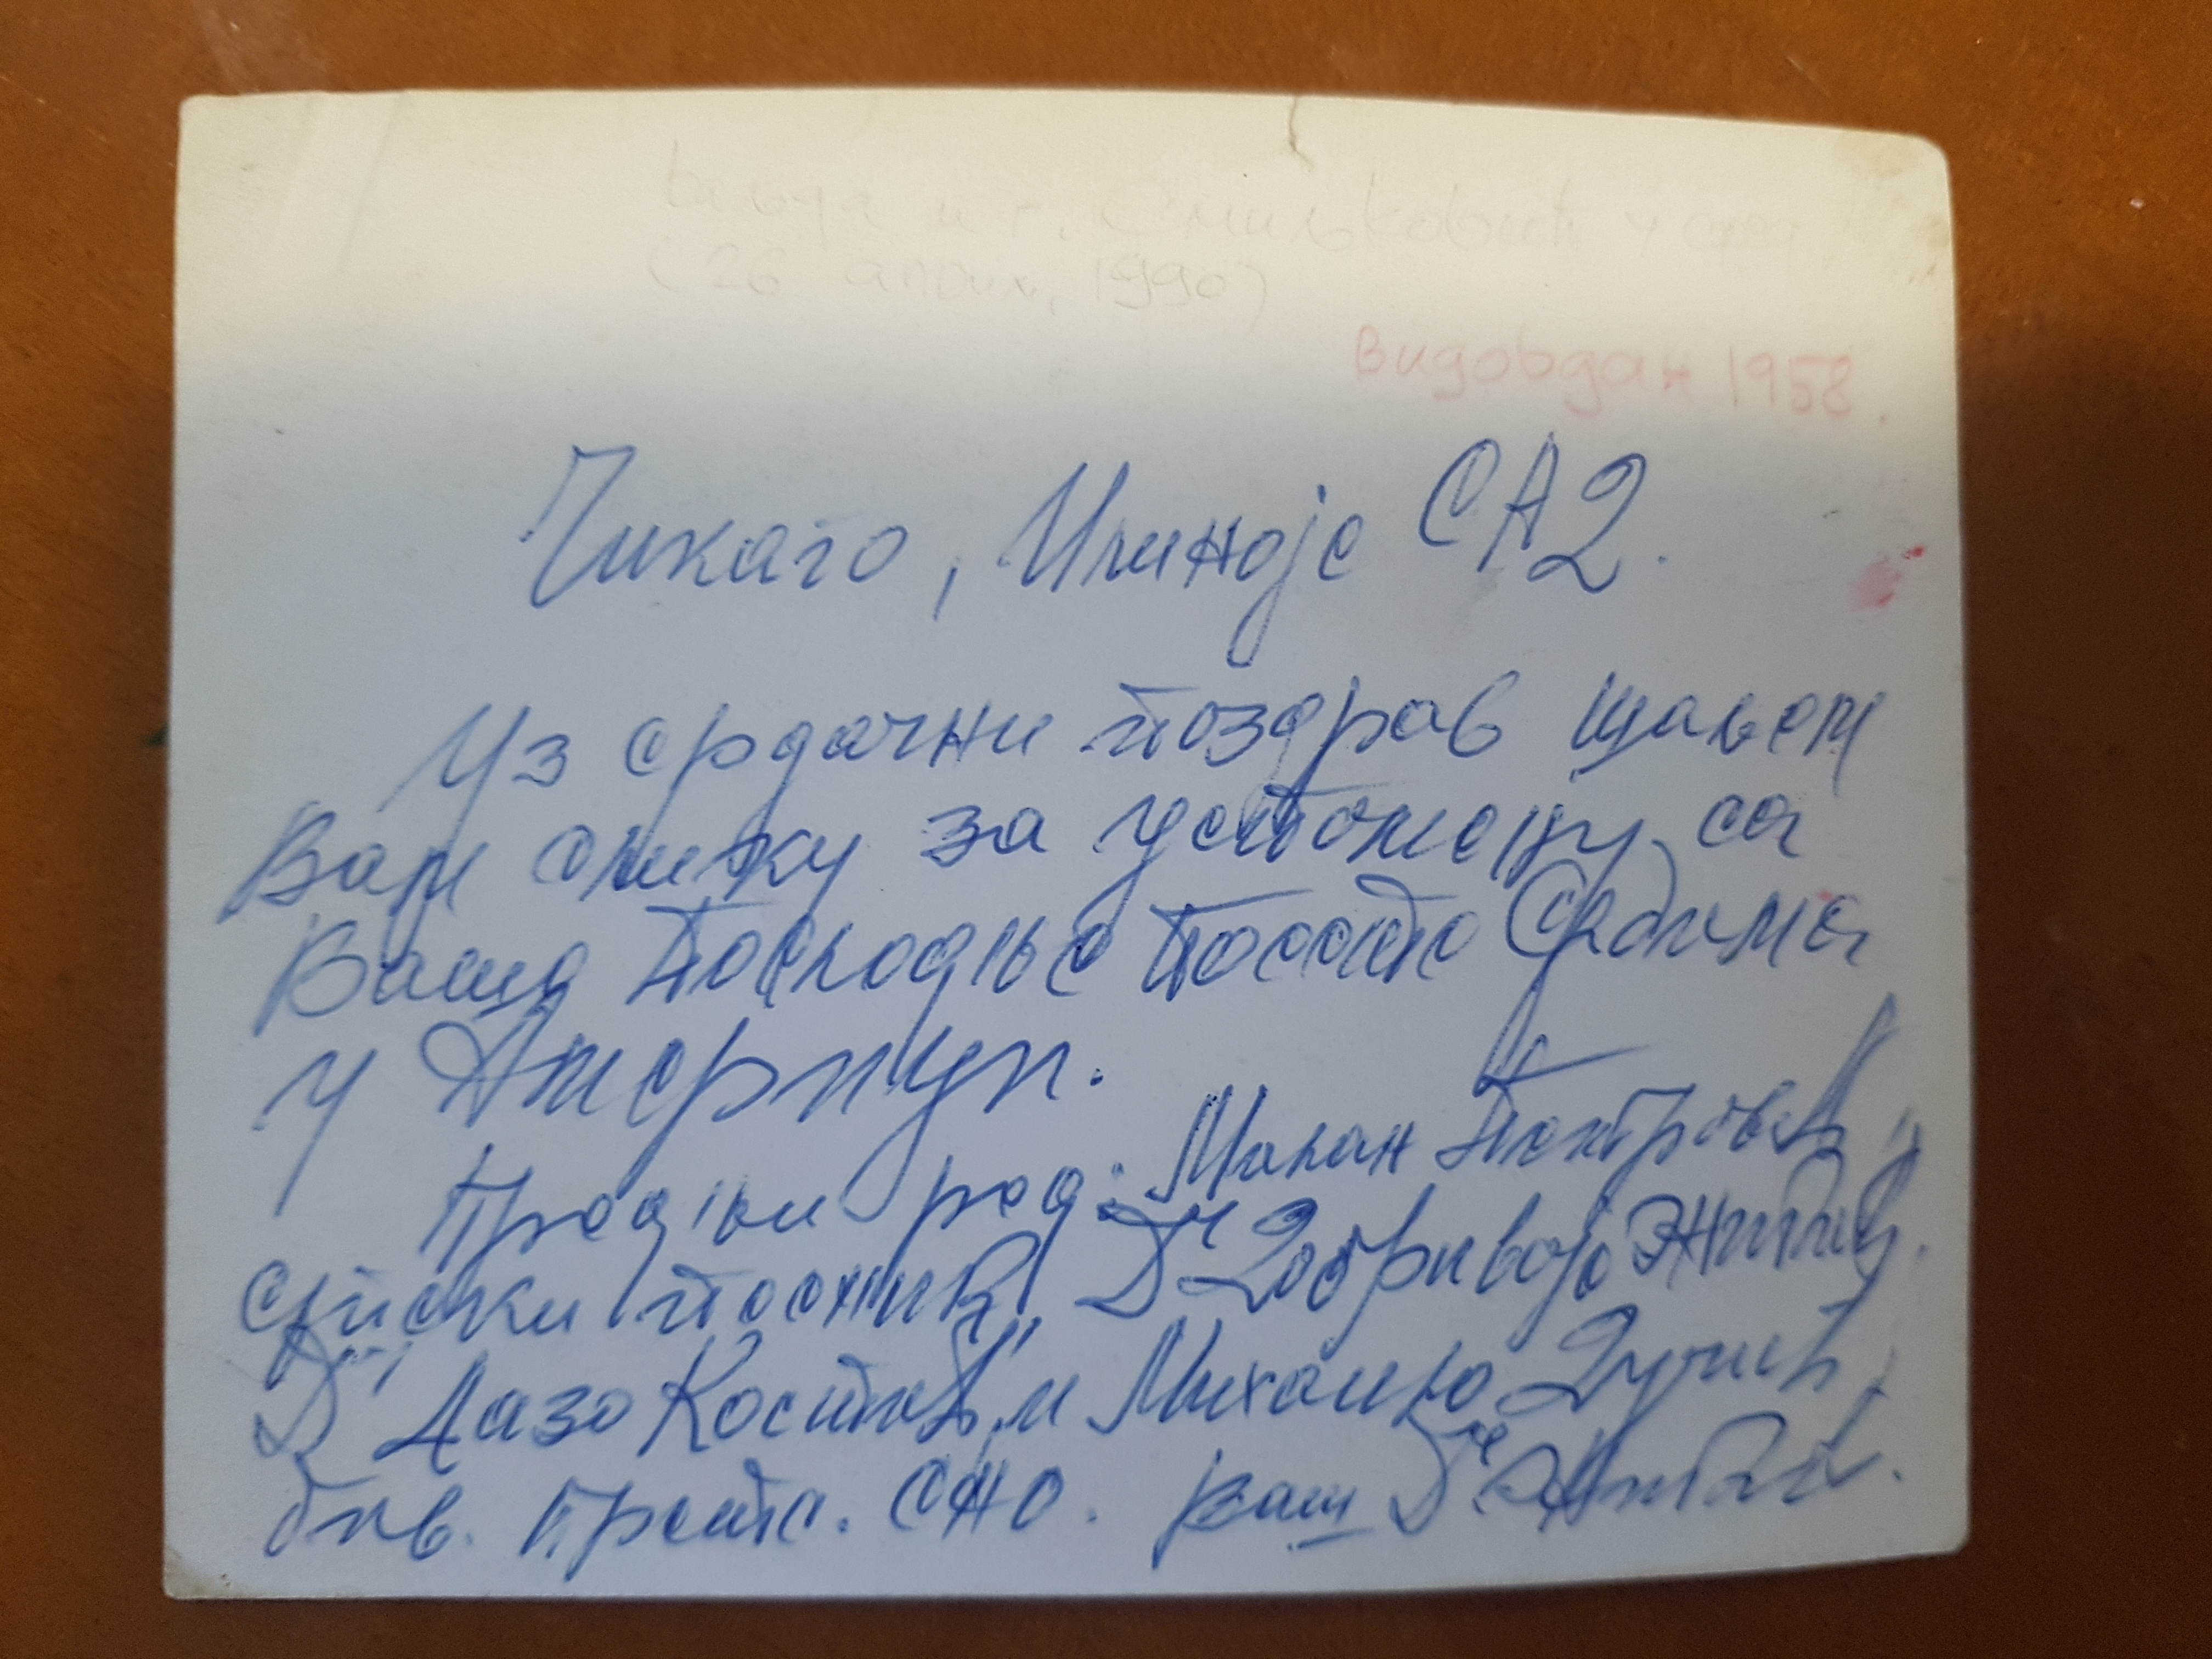 и г. Смиљковић у
(26 април, 1990)
Видовдан 1958.
Чикаго, Илиноје САД.
Уз срдачни поздрав шаљем
Вам слику за успомену са
Ваше последње посете Србима
у Америци.
Предњи ред: Милан Петровић,
српски посланик, Др Добривоје
Др Лазо Костић и Михаило Дучић,
бив. претс. СНО. Ваш Др